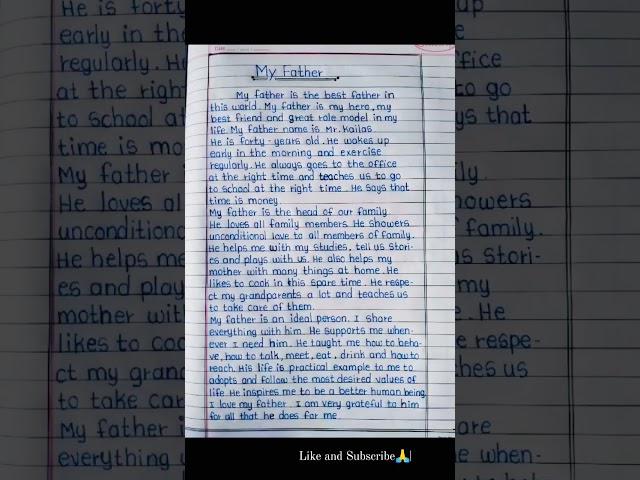 My Father
My father is the best father in
this world. My father is my hero, my
best friend and great role model in my
life. My father name is Mr. Kailas.
He is forty-years old. He wakes up
early in the morning and exercise
regularly. He always goes to the office
at the right time and teaches us to go
to school at the right time. He says that
time is money.
My father is the head of our family.
He loves all family members. He showers
unconditional love to all members of family.
He helps me with my studies, tell us stori-
es and plays with us. He also helps my
mother with many things at home. He
likes to cook in this spare time. He respe-
ct my grandparents a lot and teaches us
to take care of them.
My father is an ideal person. I share
everything with him. He supports me when-
ever I need him. He taught me how to beha-
ve, how to talk, meet, eat, drink and how to
reach. His life is practical example to me to
adopts and follow the most desired values of
life. He inspires me to be a better human being.
I love my father. I am very grateful to him
for all that he does for me.
Like and Subscribe🙏|